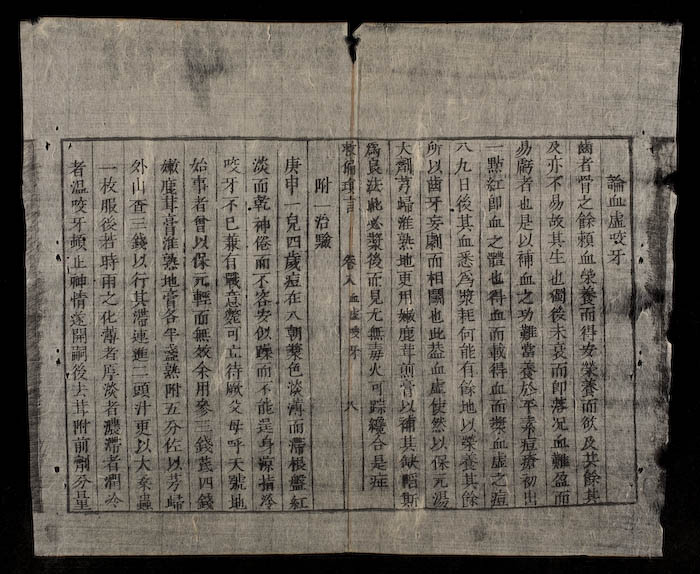 論血虛咬牙
齒者骨之餘賴血榮養而得安榮養而欲及其餘其
及亦不易故其生也獨後未衰而即落況血難盈而
易虧者也是以補血之功難當養於平素痘瘡初出
一點紅即血之體也得血而載得血而漿血虛之痘
八九日後其血悉為漿耗何能有餘地以榮養其餘
所以齒牙妄劇而相鬭也此葢血虛使然以保元湯
大劑芎歸淮熟地更用嫩鹿茸煎膏以補其缺陷斯
為良法此必漿後而見尤無毒火可踪纔合是症
救偏瑣言 卷八 血虛咬牙 八
附一治驗
庚申一兒四歲痘在八朝漿色淡薄而滯根盤紅
淡而乾神俗而不客安似躁而不能逞身凉指冷
咬牙不巳兼有戰意斃可立待厥父母呼天號地
始事者曾以保元輕而無效余用參三錢芪四錢
嫩鹿茸膏淮熟地膏各半盞熟附五分佐以芎歸
外山查三錢以行其滯連進二頭汁更以大桑蟲
一枚服後若時雨之化薄者厚淡者濃滯者潤冷
者溫咬牙頓止神情遂開嗣後去茸附前劑分量